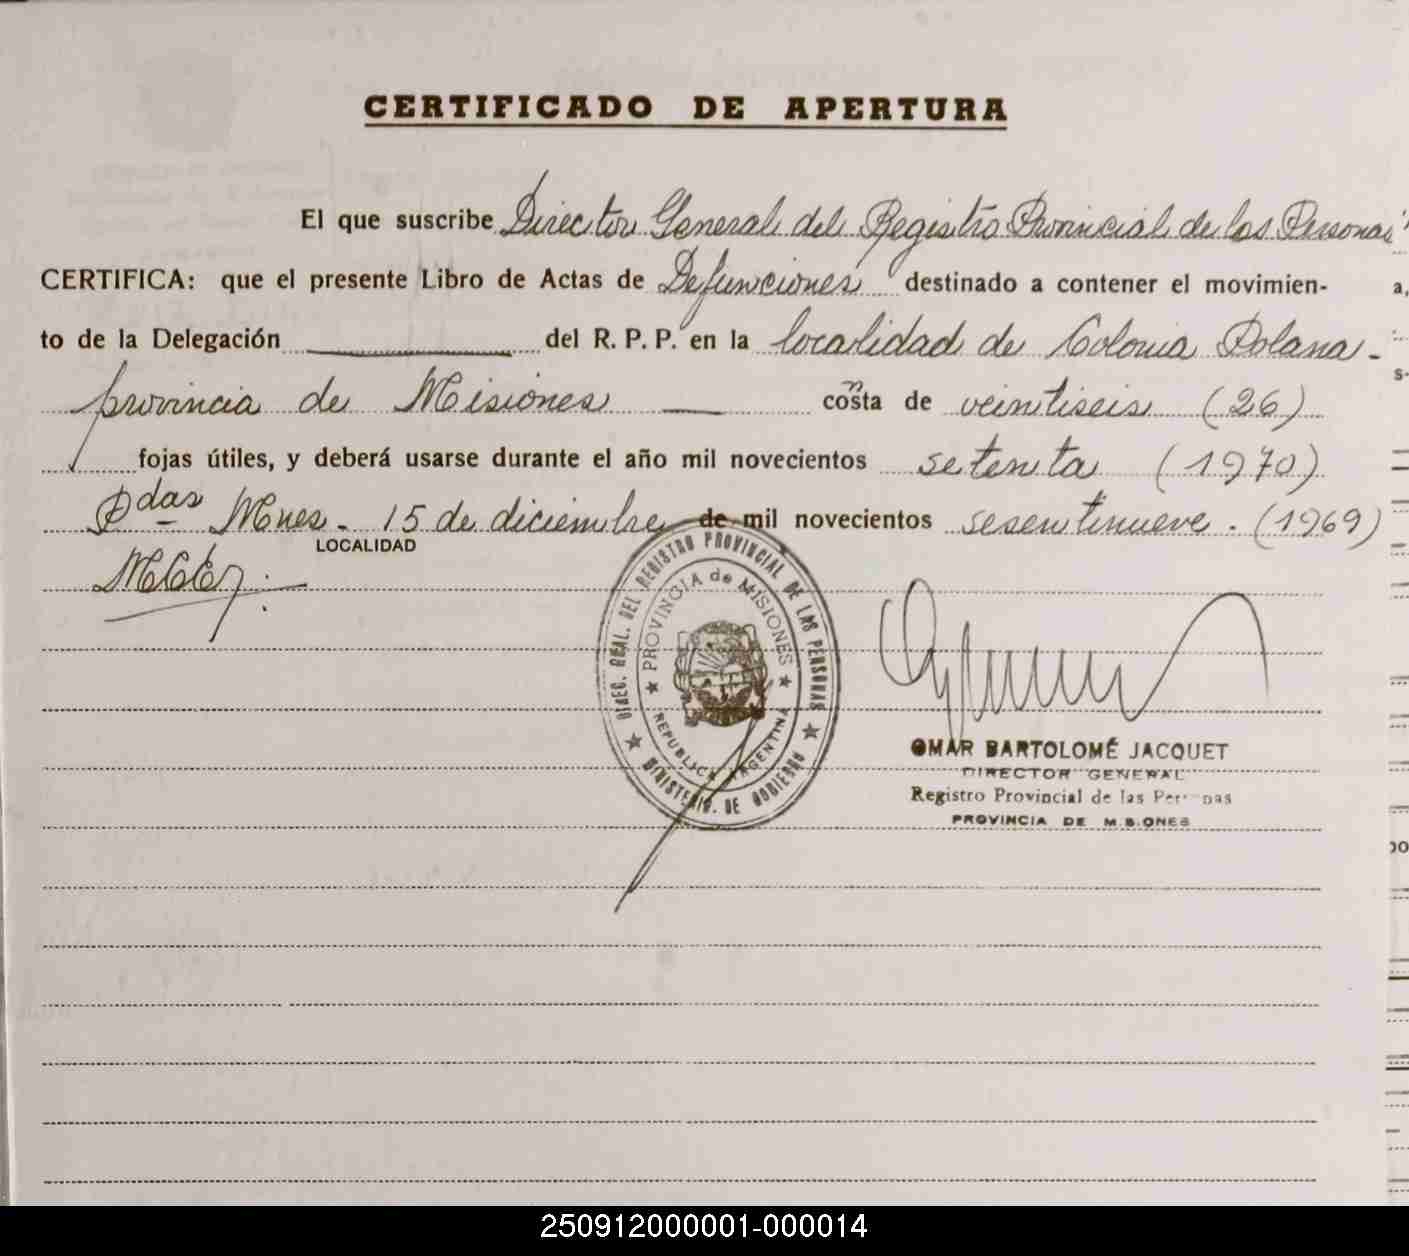 CERTIFICADO DE APERTURA
El que suscribe Director General del Registro Provincial de las Personas
CERTIFICA: que el presente Libro de Actas de Defunciones destinado a contener el movimien-
to de la Delegación del R. P. P. en la localidad de Colonia Polana -
provincia de Misiones consta de veintiseis (26)
fojas útiles, y deberá usarse durante el año mil novecientos setenta (1970)
Pdas Mnes - 15 de diciembre de mil novecientos sesentinueve. (1969)
LOCALIDAD
DIREC. GRAL. DEL REGISTRO PROVINCIAL DE LAS PERSONAS
PROVINCIA de MISIONES
REPUBLICA ARGENTINA
MINISTERIO DE GOBIERNO
OMAR BARTOLOMÉ JACQUET
DIRECTOR GENERAL
Registro Provincial de las Personas
PROVINCIA DE MISIONES
250912000001-000014